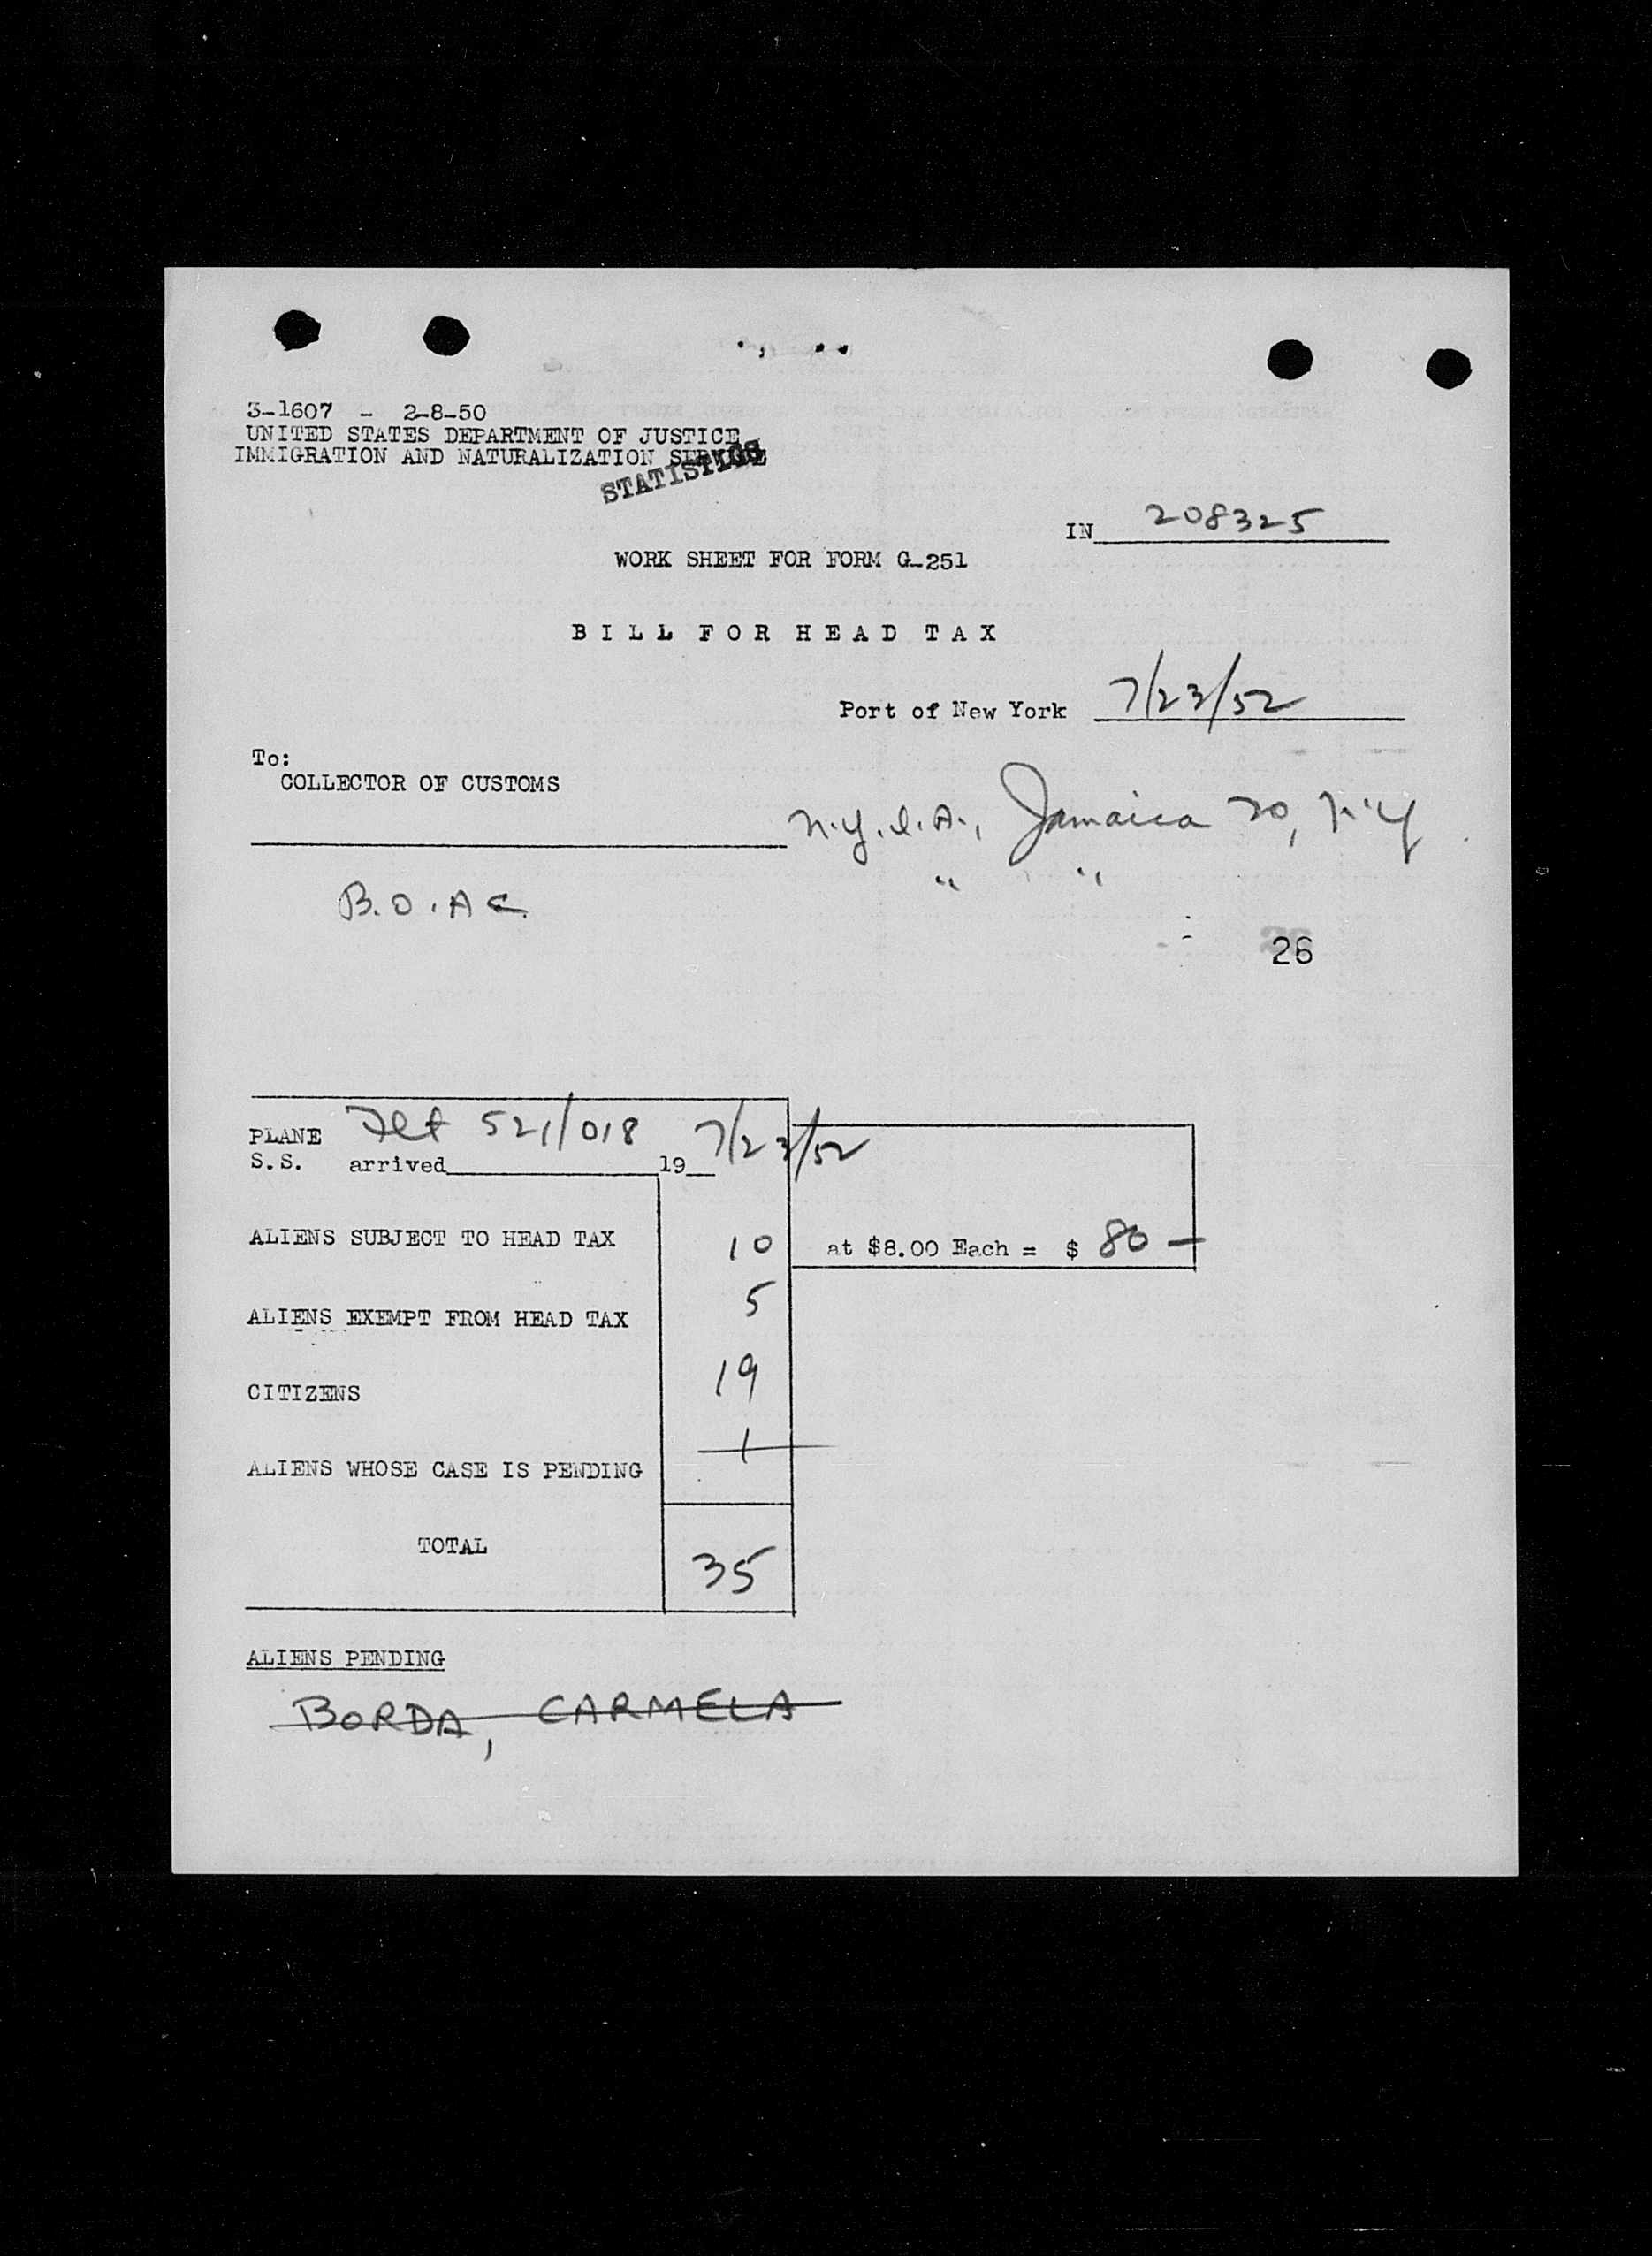 3-1607 - 2-8-50
UNITED STATES DEPARTMENT OF JUSTICE
IMMIGRATION AND NATURALIZATION SERVICE
STATISTICS
IN 208325
WORK SHEET FOR FORM G-251
BILL FOR HEAD TAX
Port of New York 7/23/52
To:
COLLECTOR OF CUSTOMS
N.Y.I.A., Jamaica 30, N.Y
" "
B.O.A.C.
26
PLANE Flt 521/018 7/23/52
S.S. arrived 19
ALIENS SUBJECT TO HEAD TAX 10 at $8.00 Each = $ 80 —
ALIENS EXEMPT FROM HEAD TAX 5
CITIZENS 19
ALIENS WHOSE CASE IS PENDING 1
TOTAL 35
ALIENS PENDING
BORDA, CARMELA